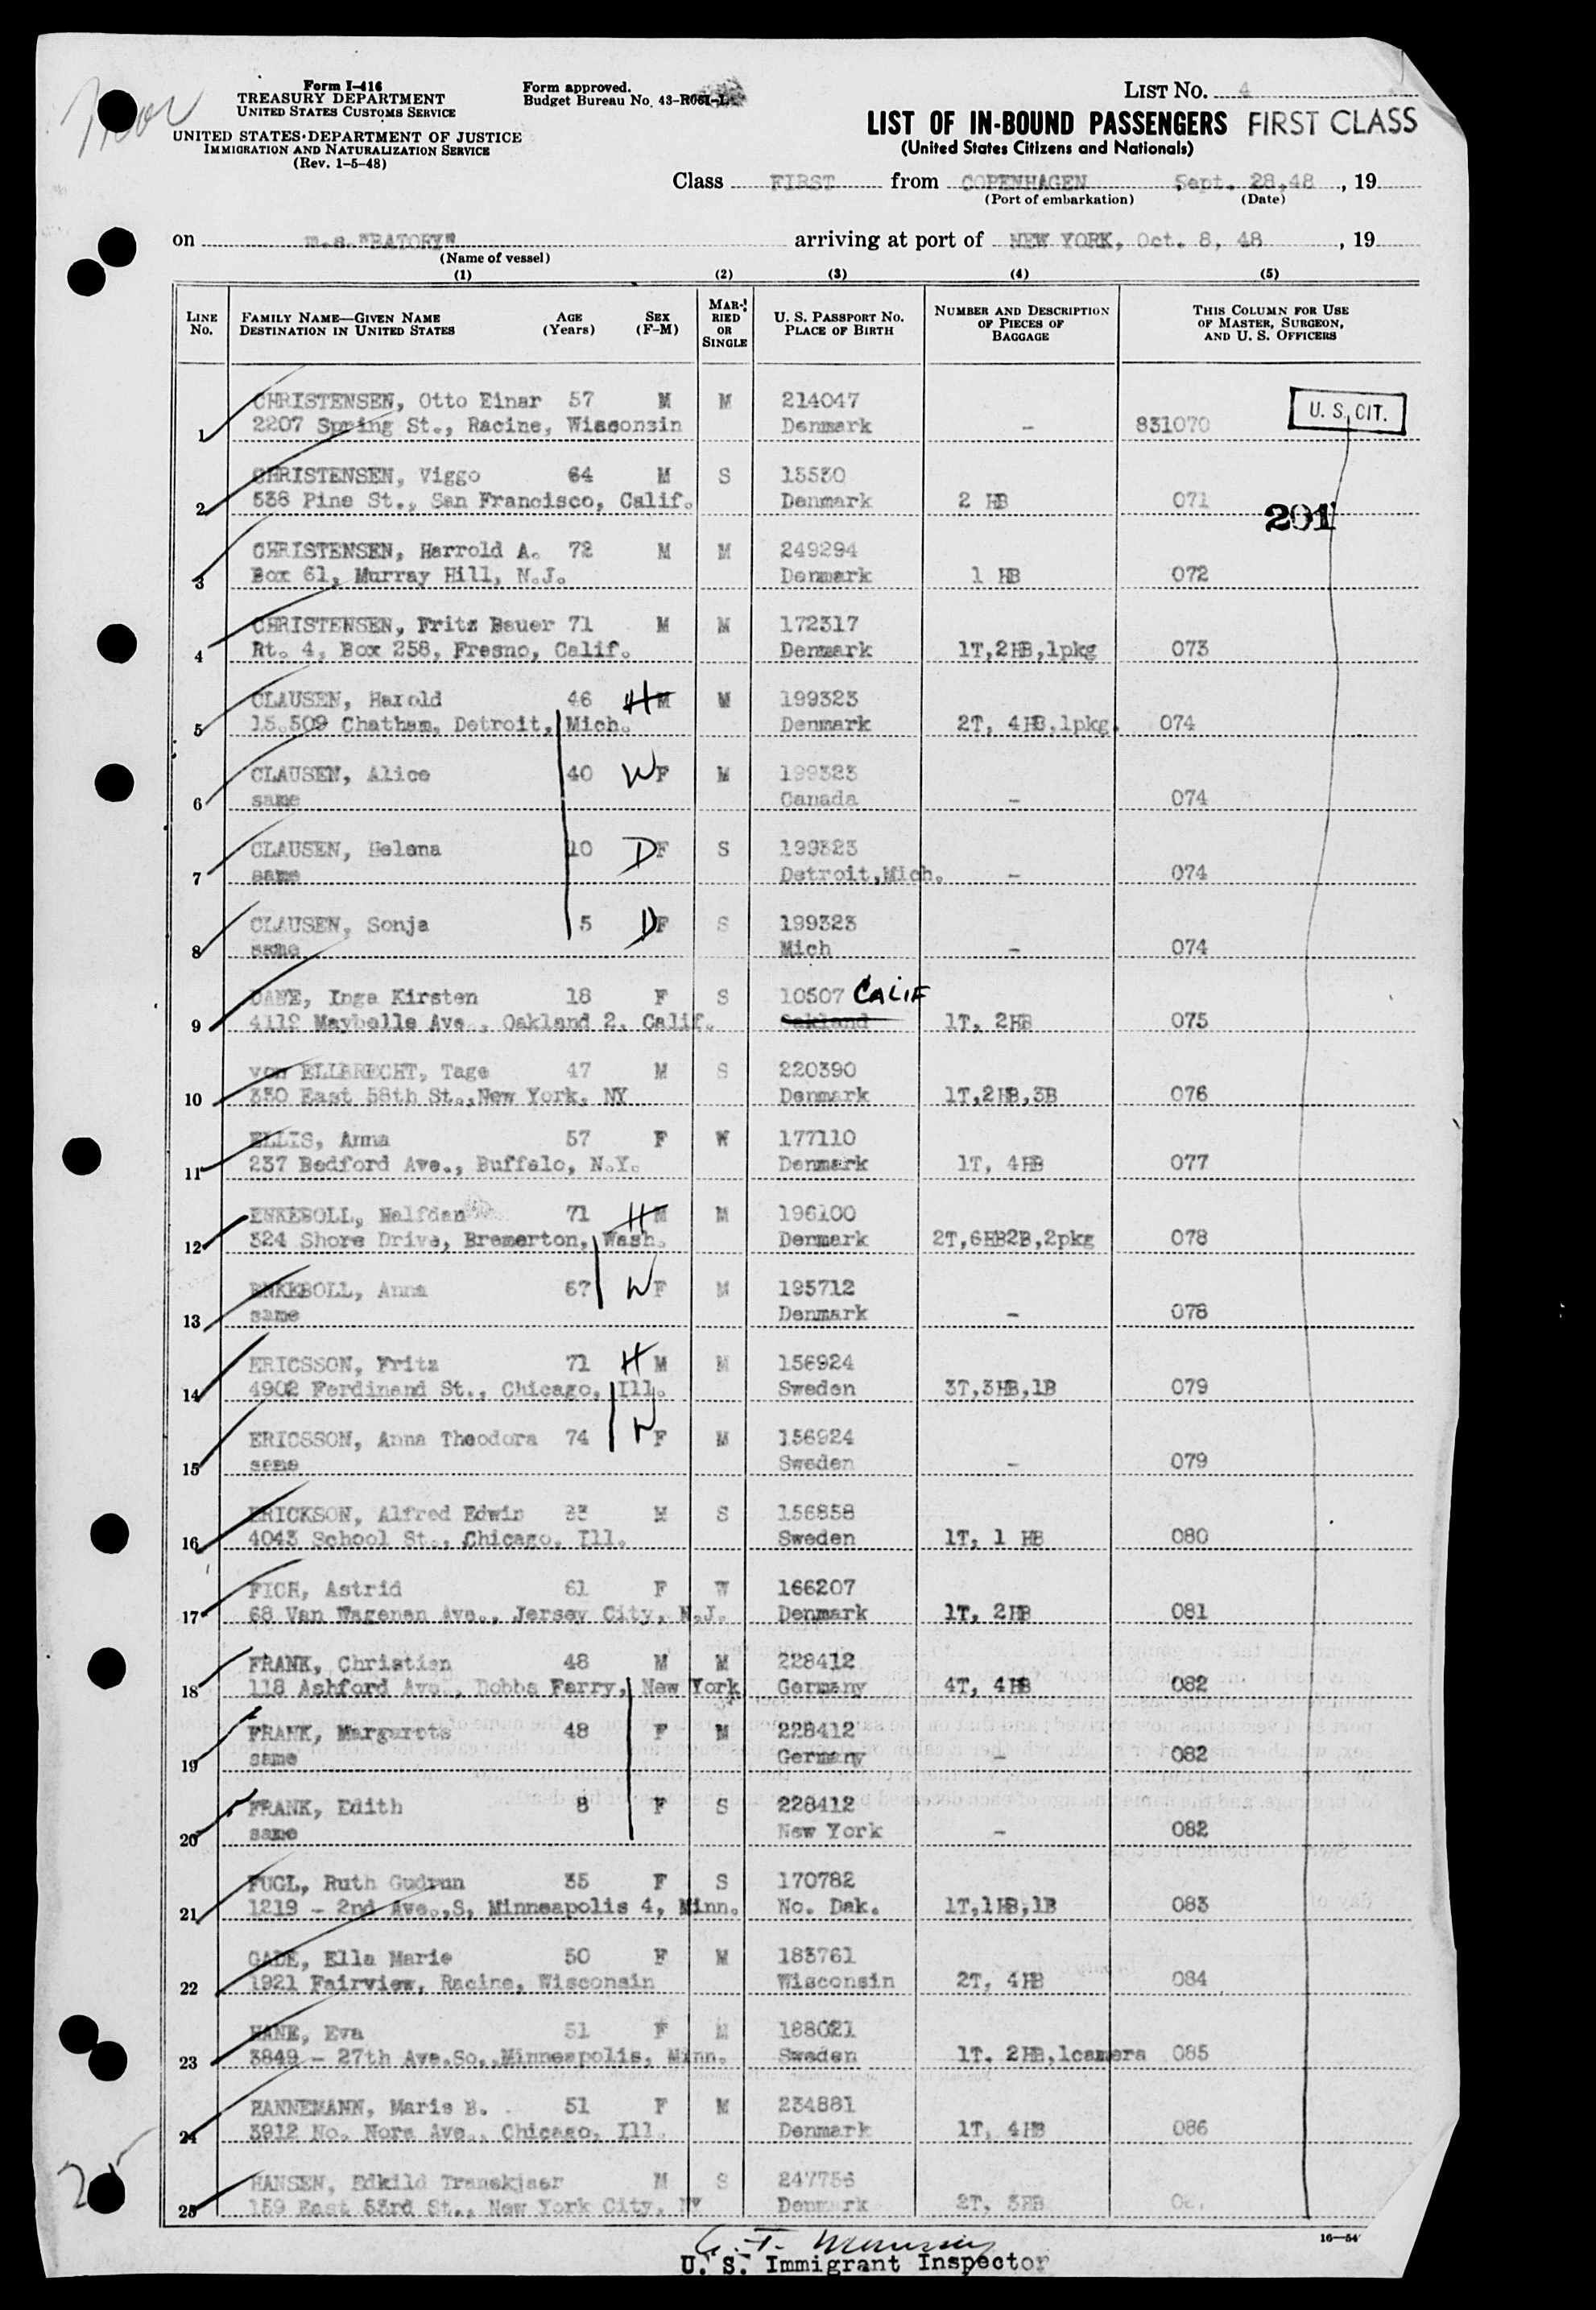 Form I-416
TREASURY DEPARTMENT
UNITED STATES CUSTOMS SERVICE
UNITED STATES DEPARTMENT OF JUSTICE
IMMIGRATION AND NATURALIZATION SERVICE
(Rev. 1-5-48)
Form approved.
Budget Bureau No. 43-R061-1.
LIST No. 4
LIST OF IN-BOUND PASSENGERS FIRST CLASS
(United States Citizens and Nationals)
Class FIRST from COPENHAGEN Sept. 28,48, 19
(Port of embarkation) (Date)
on m.s."BATORY" arriving at port of NEW YORK, Oct. 8, 48, 19
(Name of vessel)
(1) (2) (3) (4) (5)
LINE No. FAMILY NAME—GIVEN NAME DESTINATION IN UNITED STATES AGE (Years) SEX (F-M) MARRIED OR SINGLE U. S. PASSPORT NO. PLACE OF BIRTH NUMBER AND DESCRIPTION OF PIECES OF BAGGAGE THIS COLUMN FOR USE OF MASTER, SURGEON, AND U. S. OFFICERS
CHRISTENSEN, Otto Einar 57 M M 214047 U. S. CIT.
1 2207 Spring St., Racine, Wisconsin Denmark - 831070
CHRISTENSEN, Viggo 64 M S 15530
2 538 Pine St., San Francisco, Calif. Denmark 2 HB 071
201
CHRISTENSEN, Harrold A. 72 M M 249294
3 Box 61, Murray Hill, N.J. Denmark 1 HB 072
CHRISTENSEN, Fritz Bauer 71 M M 172317
4 Rt. 4, Box 258, Fresno, Calif. Denmark 1T,2HB,1pkg 073
CLAUSEN, Harold 46 H M M 199323
5 15.509 Chatham, Detroit, Mich. Denmark 2T, 4HB,1pkg. 074
CLAUSEN, Alice 40 W F M 199323
6 same Canada - 074
CLAUSEN, Helena 10 D F S 199323
7 same Detroit,Mich. - 074
CLAUSEN, Sonja 5 D F S 199323
8 same Mich - 074
DANE, Inga Kirsten 18 F S 10507 CALIF
9 4112 Maybelle Ave., Oakland 2, Calif. Oakland 1T, 2HB 075
von ELLBRECHT, Tage 47 M S 220390
10 330 East 58th St.,New York, NY Denmark 1T,2HB,3B 076
ELLIS, Anna 57 F W 177110
11 237 Bedford Ave., Buffalo, N.Y. Denmark 1T, 4HB 077
ENKEBOLL, Halfdan 71 H M M 196100
12 324 Shore Drive, Bremerton, Wash. Denmark 2T,6HB2B,2pkg 078
ENKEBOLL, Anna 67 W F M 195712
13 same Denmark - 078
ERICSSON, Fritz 71 H M M 156924
14 4902 Ferdinand St., Chicago, Ill. Sweden 3T,3HB,1B 079
ERICSSON, Anna Theodora 74 W F M 156924
15 same Sweden - 079
ERICKSON, Alfred Edwin M S 156858
16 4043 School St., Chicago, Ill. Sweden 1T, 1 HB 080
FICH, Astrid 61 F W 166207
17 68 Van Wagenen Ave., Jersey City, N.J. Denmark 1T, 2HB 081
FRANK, Christian 48 M M 228412
18 118 Ashford Ave., Dobbs Ferry, New York Germany 4T, 4HB 082
FRANK, Margarete 48 F M 228412
19 same Germany - 082
FRANK, Edith 8 F S 228412
20 same New York - 082
FUGL, Ruth Gudrun 35 F S 170782
21 1219 - 2nd Ave.,S, Minneapolis 4, Minn. No. Dak. 1T,1HB,1B 083
GADE, Ella Marie 50 F M 183761
22 1921 Fairview, Racine, Wisconsin Wisconsin 2T, 4HB 084
HANE, Eva 51 F M 188021
23 3849 - 27th Ave.So.,Minneapolis, Minn. Sweden 1T. 2HB,1camera 085
HANNEMANN, Marie B. 51 F M 234881
24 3912 No. Nora Ave., Chicago, Ill. Denmark 1T, 4HB 086
HANSEN, Edkild Tranekjaer M S 247756
25 159 East 53rd St., New York City, NY Denmark 2T, 3HB
16—54
U. S. Immigrant Inspector